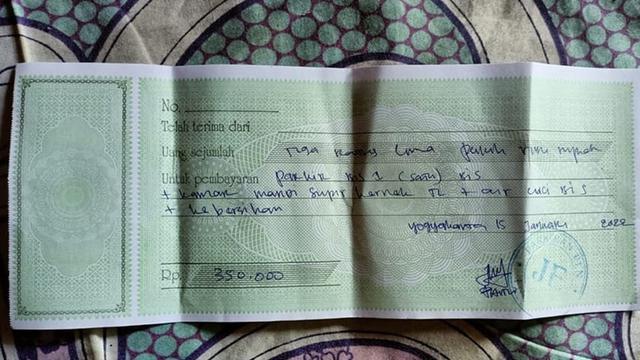 No.
Telah terima dari
Uang sejumlah Tiga Ratus Lima puluh ribu rupiah
Untuk pembayaran Parkir bis 1 (satu) Bis
+ kamar mandi supir kernek TL + air cuci Bis
+ kebersihan
Yogyakarta 15 Januari 2022
Rp. 350.000
JF